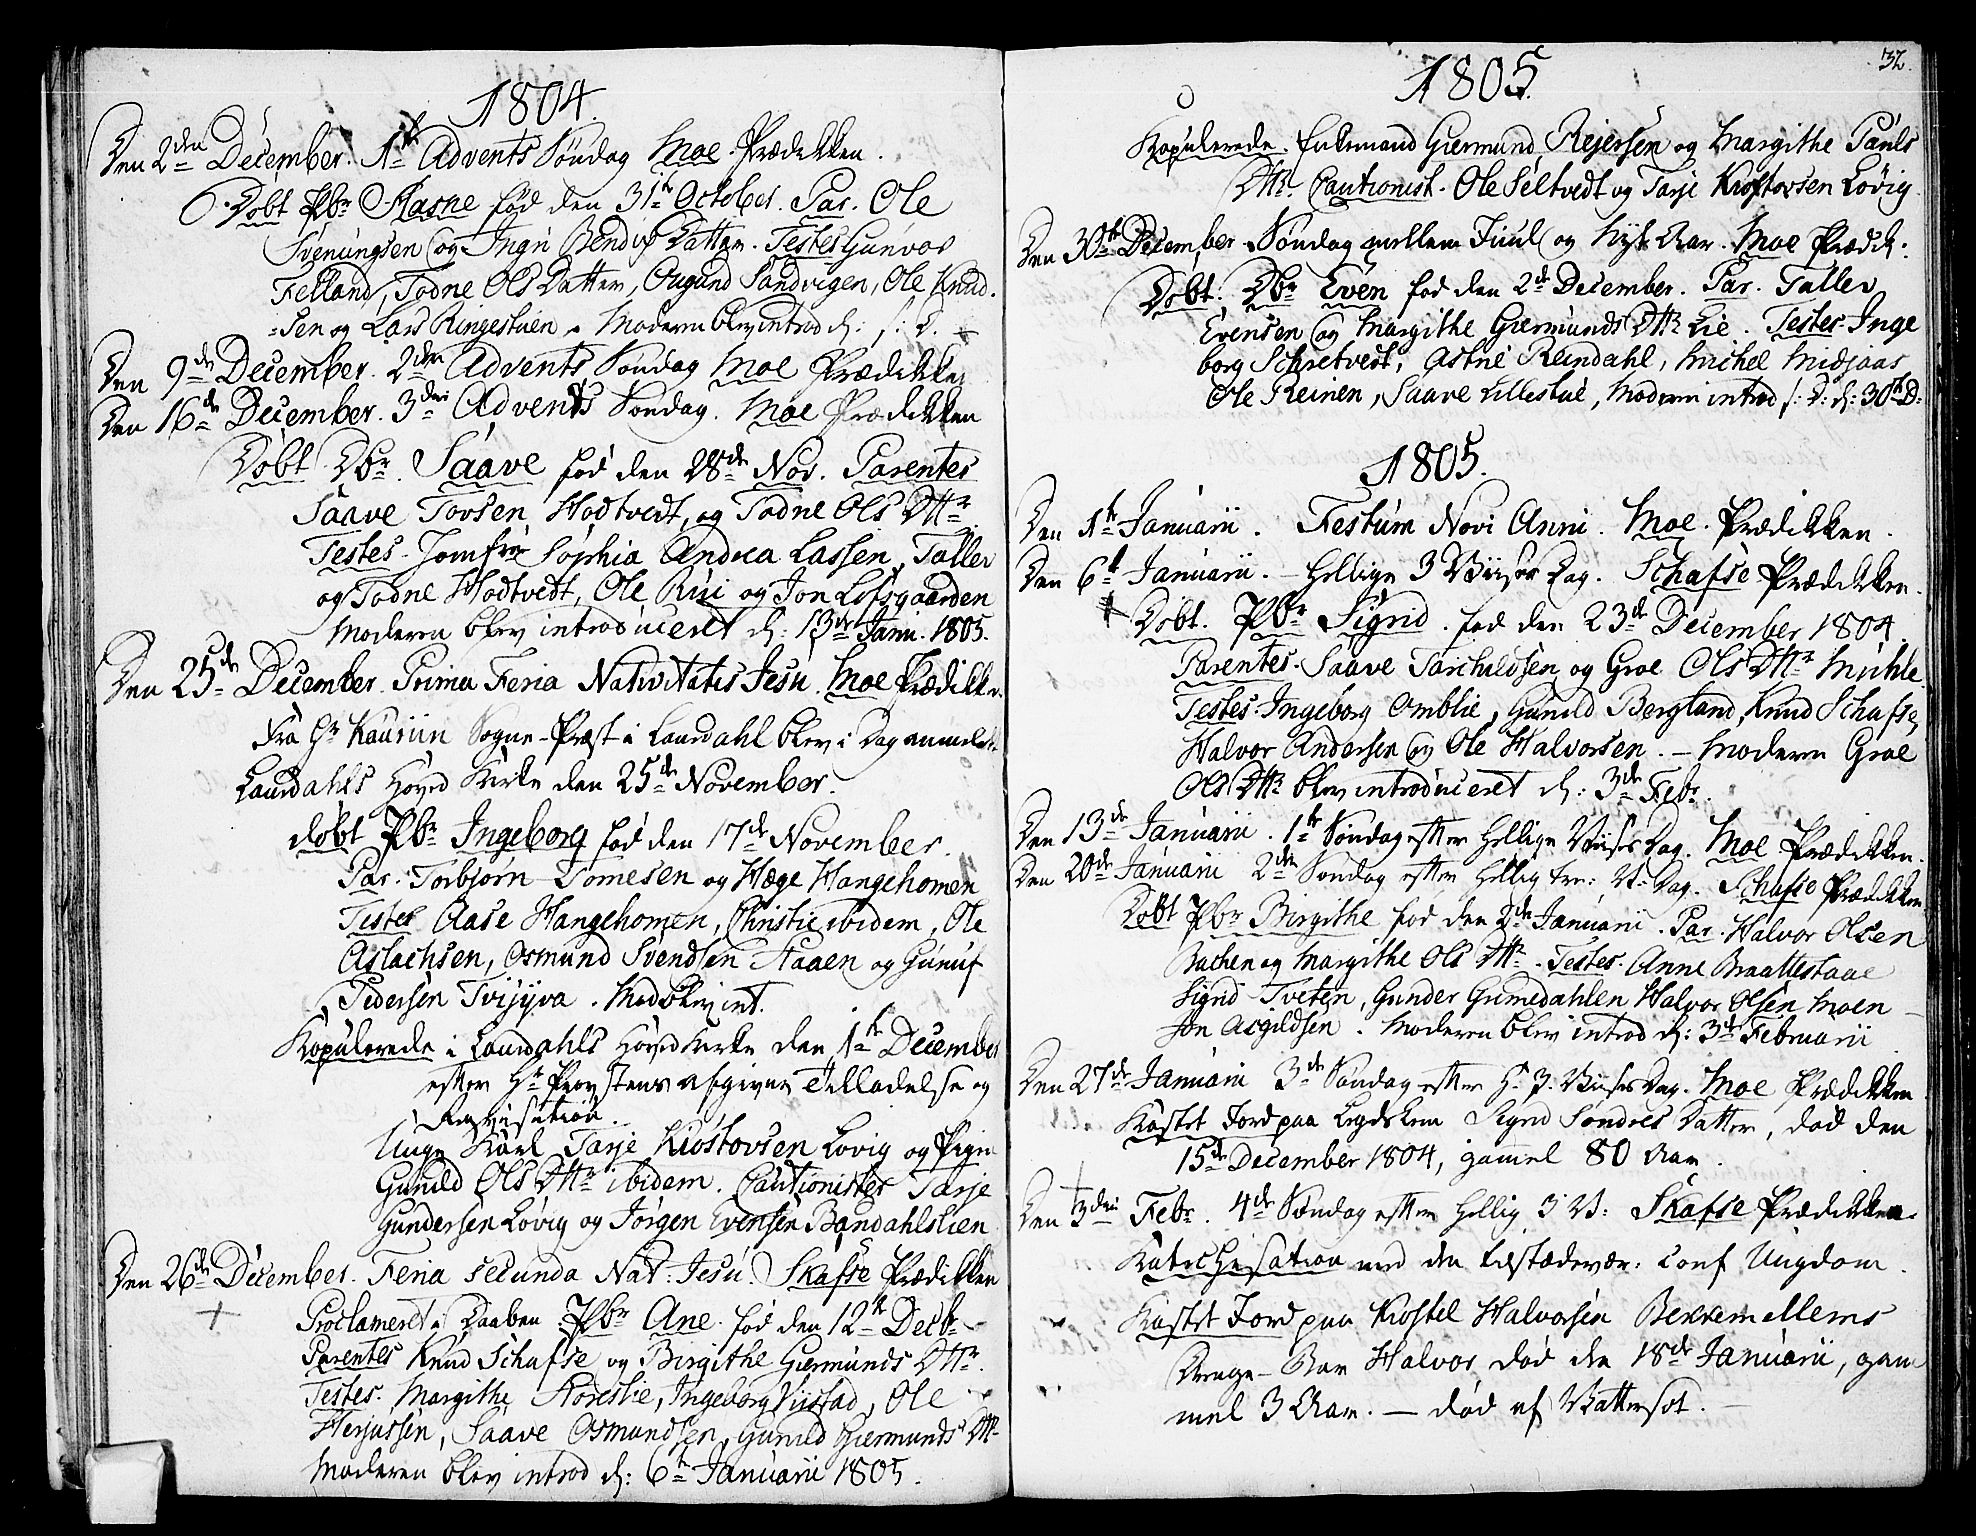 1804.
Den 2den December. 1ste Advents Søndag Moe Prædikken.
Døbt Pbr Aasne fød den 31te October. Par. Ole
Svenungsen og Ingri Bendix Datter. Testes Gunvor
Felland, Todne Ols Datter, Ougund Sandvigen, Ole Knud-
=sen og Lars Ringestuen. Moderen blev introd d: s: D.
Den 9de December. 2den Advents Søndag Moe Prædikken
Den 16de December. 3die Advents Søndag. Moe Prædikken
Døbt Dbr. Saave fød den 28de Nov. Parentes
Saave Tovsen Hodtvedt, og Todne Ols Dttr
Testes. Jomfrue Sophia Andrea Lassen, Tallev
og Todne Hodtvedt, Ole Rui og Jon Lofsgaarden
Moderen blev introduceret d: 13de Janu. 1805.
Den 25de December. Prima Feria Nativitatis Jesu. Moe Prædikken.
Fra Hr Kauriin Sogne-Præst i Laurdahl blev i Dag anmeldt
Laurdahls Hoved Kirke den 25de November.
døbt Pbr Ingeborg fød den 17de November.
Par. Torbjørn Tomesen og Hæge Hangehomen
Testes Aase Hangehomen, Christie ibidem, Ole
Aslachsen, Osmund Svendsen Staaen og Gunuf
Pedersen Tvijyva. Mod blev int.
Kopulerede i Laurdahls Hoved Kirke den 1te December
efter Hr Provstens afgivne Tilladelse og
Reqvisition.
Unge Karl Tarje Kiostovsen Lovig og Pigen
Gunild Ols Dttr ibidem. Cautionister Tarje
Gundersen Lovig og Jørgen Evensen Bandahlslien
Den 26de December. Feria secunda Nat: Jesu. Skafse Prædikken
Proclameret i Daaben Pbr Ane. fød den 12te Decbr
Parentes Knud Schafse og Birgithe Giermunds Dttr.
Testes. Margithe Storeslie, Ingeborg Viistad, Ole
Herjussen, Saave Osmundsen, Gunild Giermunds Dttr
Moderen blev introd d: 6te Januarii 1805.
32.
1805.
Kopulerede. Enkemand Giermund Rejersen og Margithe Pauls
Dttr. Cautionist. Ole Seltvedt og Tarje Kiostovsen Lovig.
Den 30te December Søndag mellem Juul og Nyt Aar. Moe Prædik.
Døbt. Dbr Even fød den 2de December. Par. Tallev
Evensen og Margithe Giermunds Dttr Lie. Testes. Inge
borg Schretvedt, Astrie Reindahl, Michel Midjaas
Ole Reinen, Saave Lillestue, Moderen introd s: D: d: 30te D:
1805.
Den 1te Januarii. Festum Novi Anni. Moe. Prædikken.
Den 6te Januarii. - Hellige 3 Viisers Dag. Schafse Prædikken.
Døbt. Pbr Sigrid. fød den 23de December 1804.
Parentes. Saave Tarchildsen og Groe Ols Dttr Muhle.
Testes. Ingeborg Omblie, Gunild Bergland, Knud Schafse,
Halvor Andersen og Ole Halvorsen. - Moderen Groe
Ols Dttr blev introduceret d: 3de Febr.
Den 13de Januarii. 1te Søndag efter Hellige Viisers Dag. Moe Prædikken.
Den 20de Januarii 2den Søndag efter Hellig tre: V: Dag. Schafse Prædikken
Døbt Pbr Birgithe fød den 2de Januarii. Par. Halvor Olsen
Bachen og Margithe Ols Dttr. Testes. Anne Braattestaae
Sigrid Tveten, Gunder Grimedahlen Halvor Olsen Moen
Jon Asgildsen. Moderen blev introd d: 3de Februarii
Den 27de Januarii 3de Søndag efter H: 3. Viisers Dag. Moe Prædikken
Kastet Jord paa Lægdslem Sigrid Søndres Datter, død den
15de December 1804, gamel 80 Aar.
Den 3die Febr. 4de Søndag efter Hellig 3 V: Skafse Prædikken.
Katechisation med den tilstædevær: Conf Ungdom.
Kastet Jord paa Kiostel Halvorsen Bekkemellems
Drenge-Bar Halvor, død den 18de Januarii, gam
mel 3 Aar. - død af Vattersot.